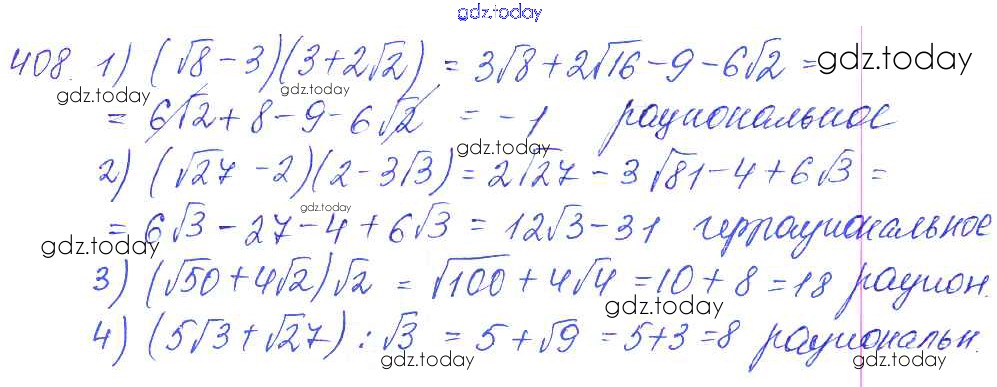 gdz.today
408. 1) (√8 - 3)(3 + 2√2) = 3√8 + 2√16 - 9 - 6√2 = gdz.today
gdz.today gdz.today
= 6√2 + 8 - 9 - 6√2 = -1 рациональное
gdz.today
2) (√27 - 2)(2 - 3√3) = 2√27 - 3√81 - 4 + 6√3 =
gdz.today
= 6√3 - 27 - 4 + 6√3 = 12√3 - 31
gdz.today
3) (√50 + 4√2)√2 = √100 + 4√4 = 10 + 8 = 18 рацион.
gdz.today
4) (5√3 + √27) : √3 = 5 + √9 = 5+3 = 8 рациональн.
gdz.today gdz.today gdz.today